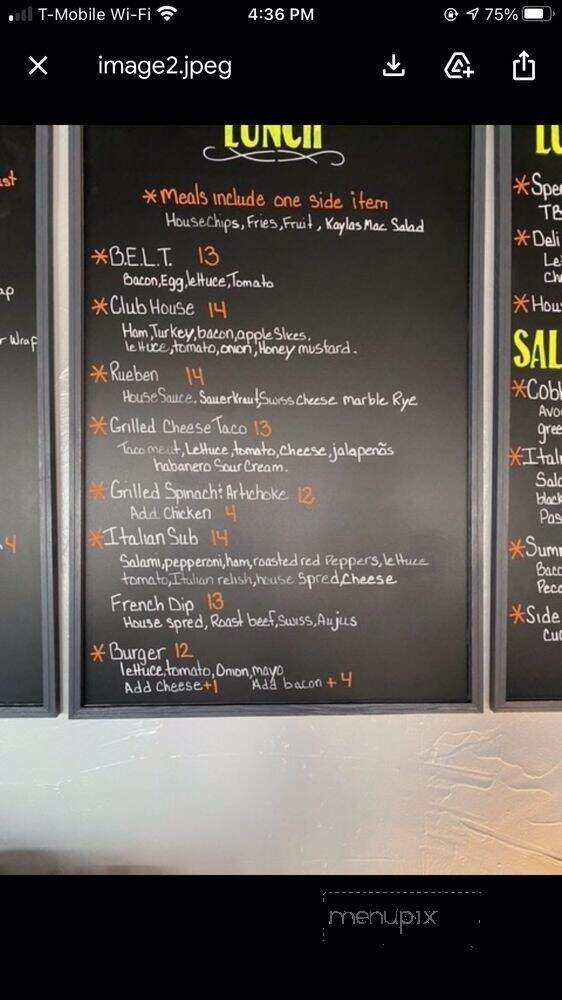 T-Mobile Wi-Fi 4:36 PM 75%
image2.jpeg
LUNCH
*Meals include one side item
House Chips, Fries, Fruit, Kaylas Mac Salad
*B.E.L.T. 13
Bacon, Egg, lettuce, Tomato
*Club House 14
Ham, Turkey, bacon, apple Slices,
lettuce, tomato, onion, Honey mustard.
*Rueben 14
House Sauce, Sauerkraut, Swiss Cheese marble Rye
*Grilled Cheese Taco 13
Taco meat, Lettuce, tomato, cheese, jalapenõs
habanero Sour Cream.
*Grilled Spinach & Artichoke 12
Add Chicken 4
*Italian Sub 14
Salami, pepperoni, ham, roasted red Peppers, lettuce
tomato, Italian relish, house Spred, Cheese
French Dip 13
House spred, Roast beef, Swiss, Aujus
*Burger 12
lettuce, tomato, Onion, mayo
Add Cheese +1 Add bacon +4
ap
r Wrap
4
*Spe
TB
*Deli
Le
Ch
*Hou
SAL
*Cobb
Avo
gree
*Itali
Sala
black
Pas
*Summ
Baco
Peco
*Side
Cu
menupix